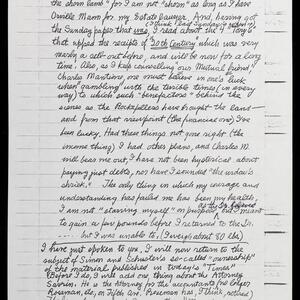 the shorn lamb" for I am not "shorn" as long as I have
Orville Mann for my Estate Lawyer. And, having got
the Sunday paper that was, I read about the 4
that upped the receipts of "20th Century" which was very
nearly a sell-out before, and will be now for a long
time. Also, as I keep counselling our Mutual friend,
Charles Mantione, one must believe in one's luck
when "gambling" with the terrible times (in every
way) to which such "benefactors" behind the
scenes as the Rockefellers have brought the land—
and from that viewpoint (the financial one) I've
been lucky. Had these things not gone right (the
income thing) I had other plans, and Charles M.
will bear me out, I have not been hysterical about
paying just debts, nor have I sounded "the widow's
shriek." The only thing in which my courage and
understanding has failed me has been my health,
I am not "starving myself" on purpose, but I meant
to gain a few pounds before I returned to the
but I was unable to, I weigh about 90 lbs,
I have just spoken to you, I will now return to the
subject of Simon and Schuster's so-called "ownership"
of the material published in today's "Times"
Before I do, I will add one thing about the Attorney
He is the Attorney for the accountants for
on Fifth Ave.